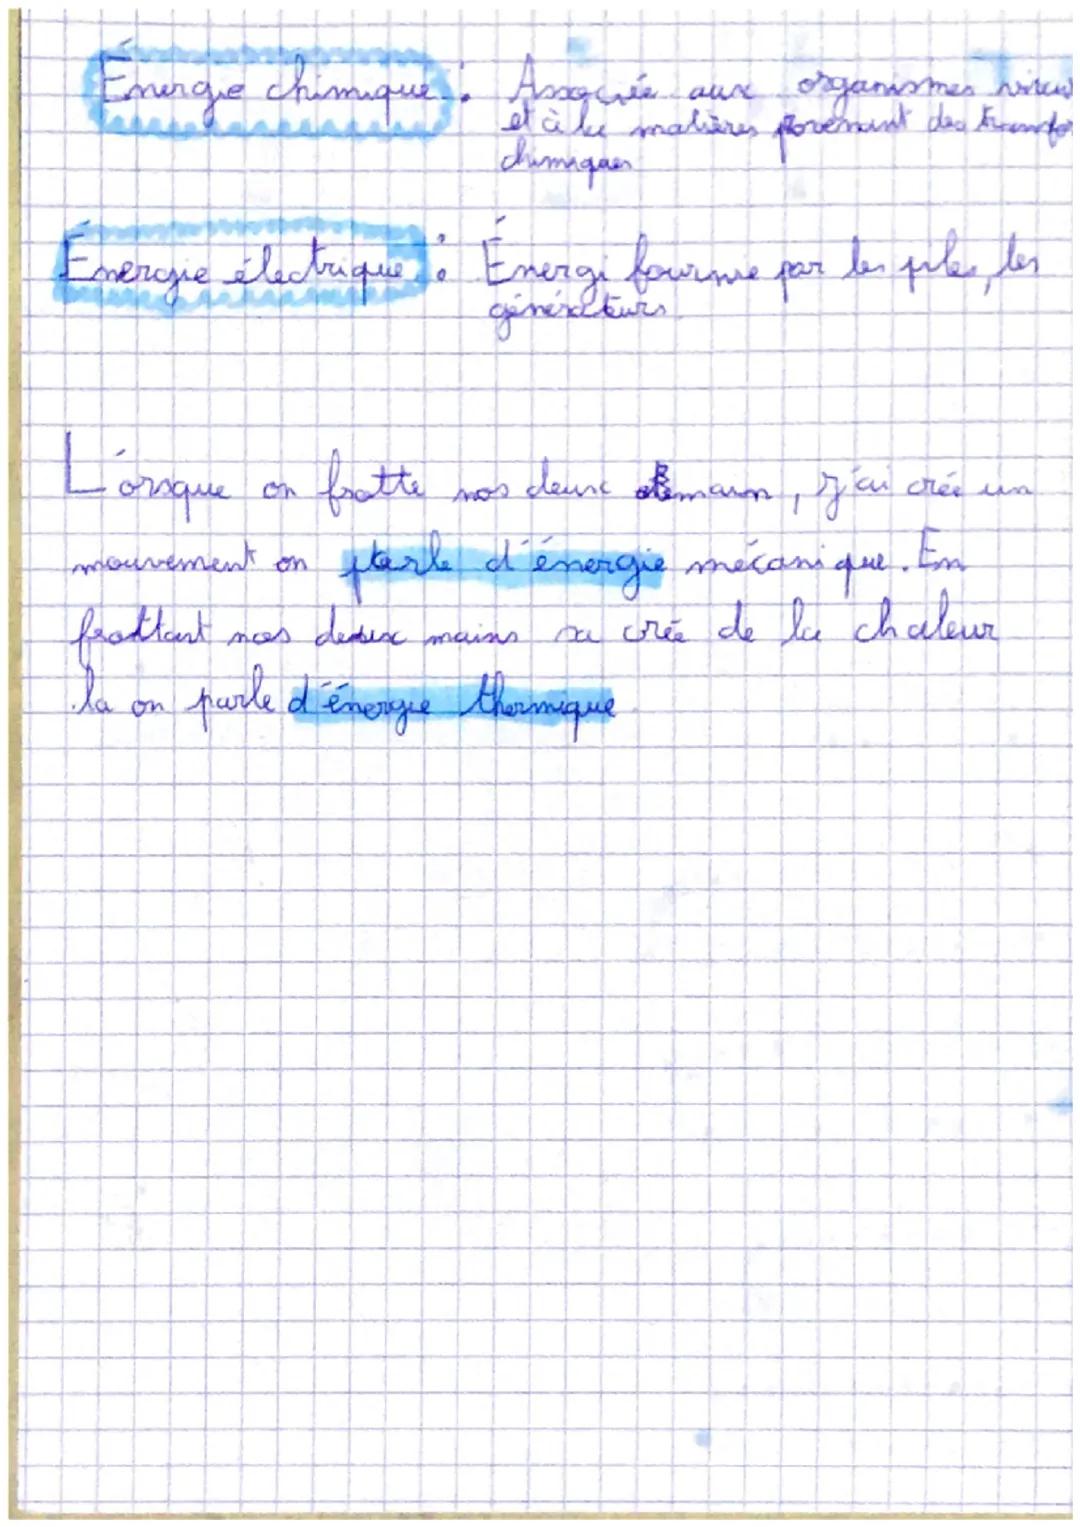 Énergie chimique : Associée aux organismes
et à la matières provenant des transfor
chimiques
Énergie électrique : Énergi fournie par les piles, les
générateurs
Lorsque on frotte nos deux main, j'ai crée un
mouvement on parle d'énergie mécanique. En
frottant nos deux mains sa crée de la chaleur
la on parle d'énergie thermique